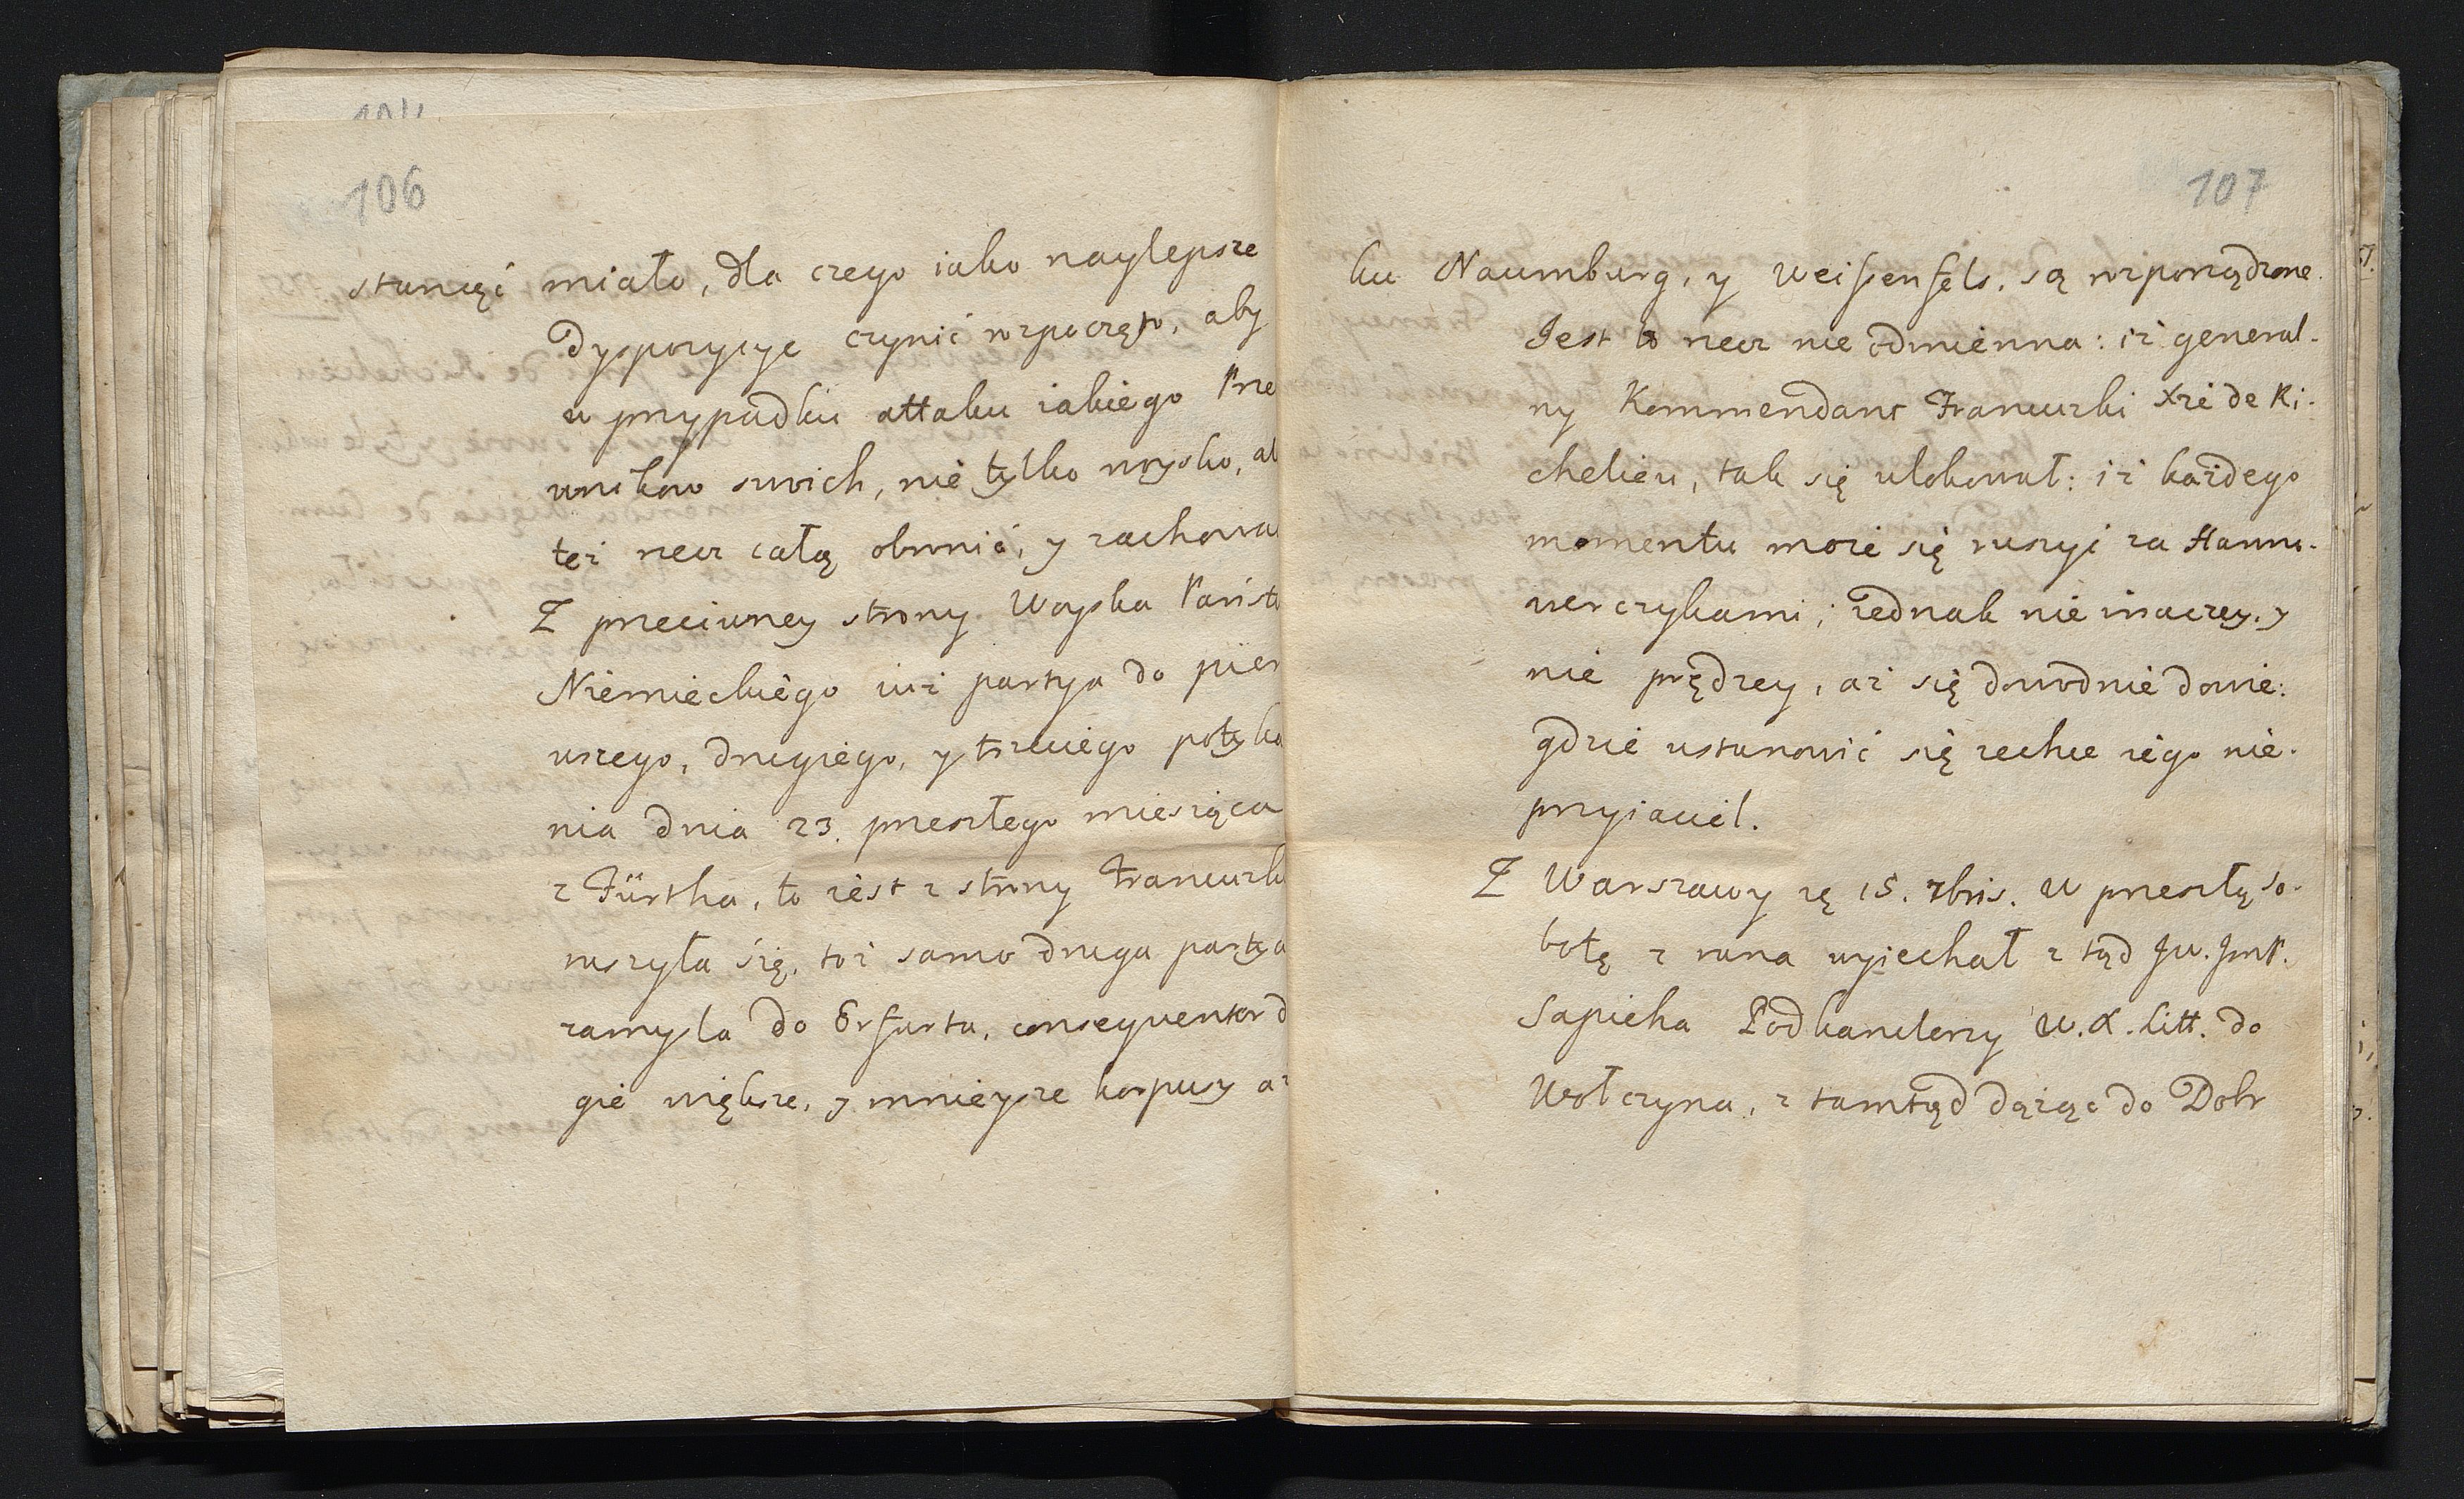 106
stanąć miało, dla czego iako naylepsze
Dyspozycye czynić rozpoczęto, aby
w przypadku attaku iakiego Prze
wnikow swoich, nie tylko woysko, al
też rzecz całą obronić, y zachowa
Z przeciwney strony Woyska Państ
Niemieckiego iuż partya do pier
wszego, drugiego, y trzeciego potyka
nia dnia 23. przeszłego miesiąca
z Fürtha, to iest z strony Francuzk
ruszyła się, toż samo druga partya
zamysla do Erfurtu, consequenter d
gie większe, y mnieysze korpusy a
107
ku Naumburg, y Weissenfels, są rozporządzone.
Jest to rzecz nie odmienna: iż general-
ny Kommendant Francuzki Xże de Ri-
chelieu, tak się ulokował: iż każdego
momentu może się ruszyć za Hanno-
werczykami; iednak nie inaczey, y
nie prędzey, aż się dowodnie dowie:
gdzie ustanowić się zechce iego nie-
przyiaciel.
Z Warszawy zę 15. 7bris. W przeszłą so-
botę z rana wyiechał z tąd Jw. Jmp.
Sapieha Podkanclerzy W. X. Litt. do
Wołczyna, z tamtąd dążąc do Dobr